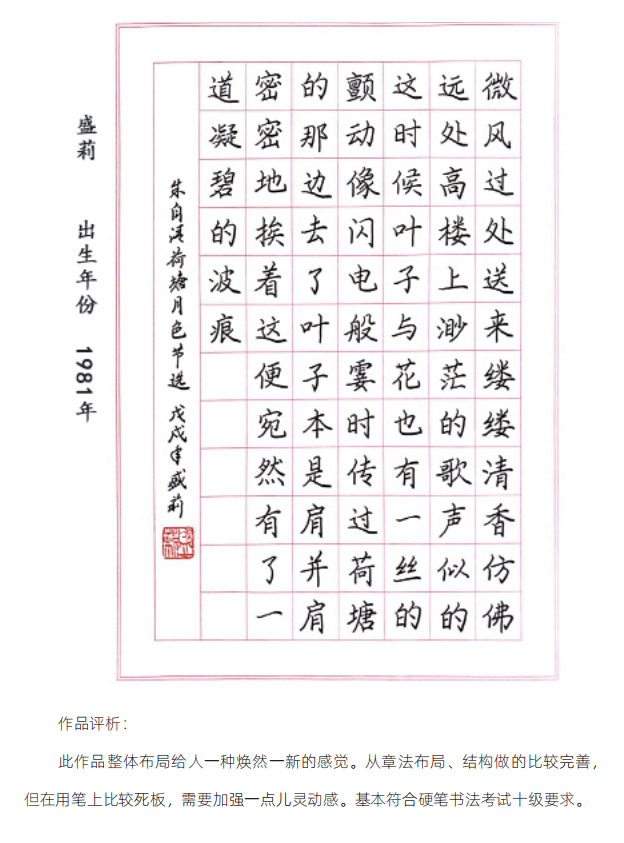 微风过处送来缕缕清香仿佛
远处高楼上渺茫的歌声似的
这时候叶子与花也有一丝的
颤动像闪电般霎时传过荷塘
的那边去了叶子本是肩并肩
密密地挨着这便宛然有了一
道凝碧的波痕
朱自清荷塘月色节选 戊戌年盛莉
盛莉 出生年份 1981年
作品评析：
此作品整体布局给人一种焕然一新的感觉。从章法布局、结构做的比较完善，
但在用笔上比较死板，需要加强一点儿灵动感。基本符合硬笔书法考试十级要求。